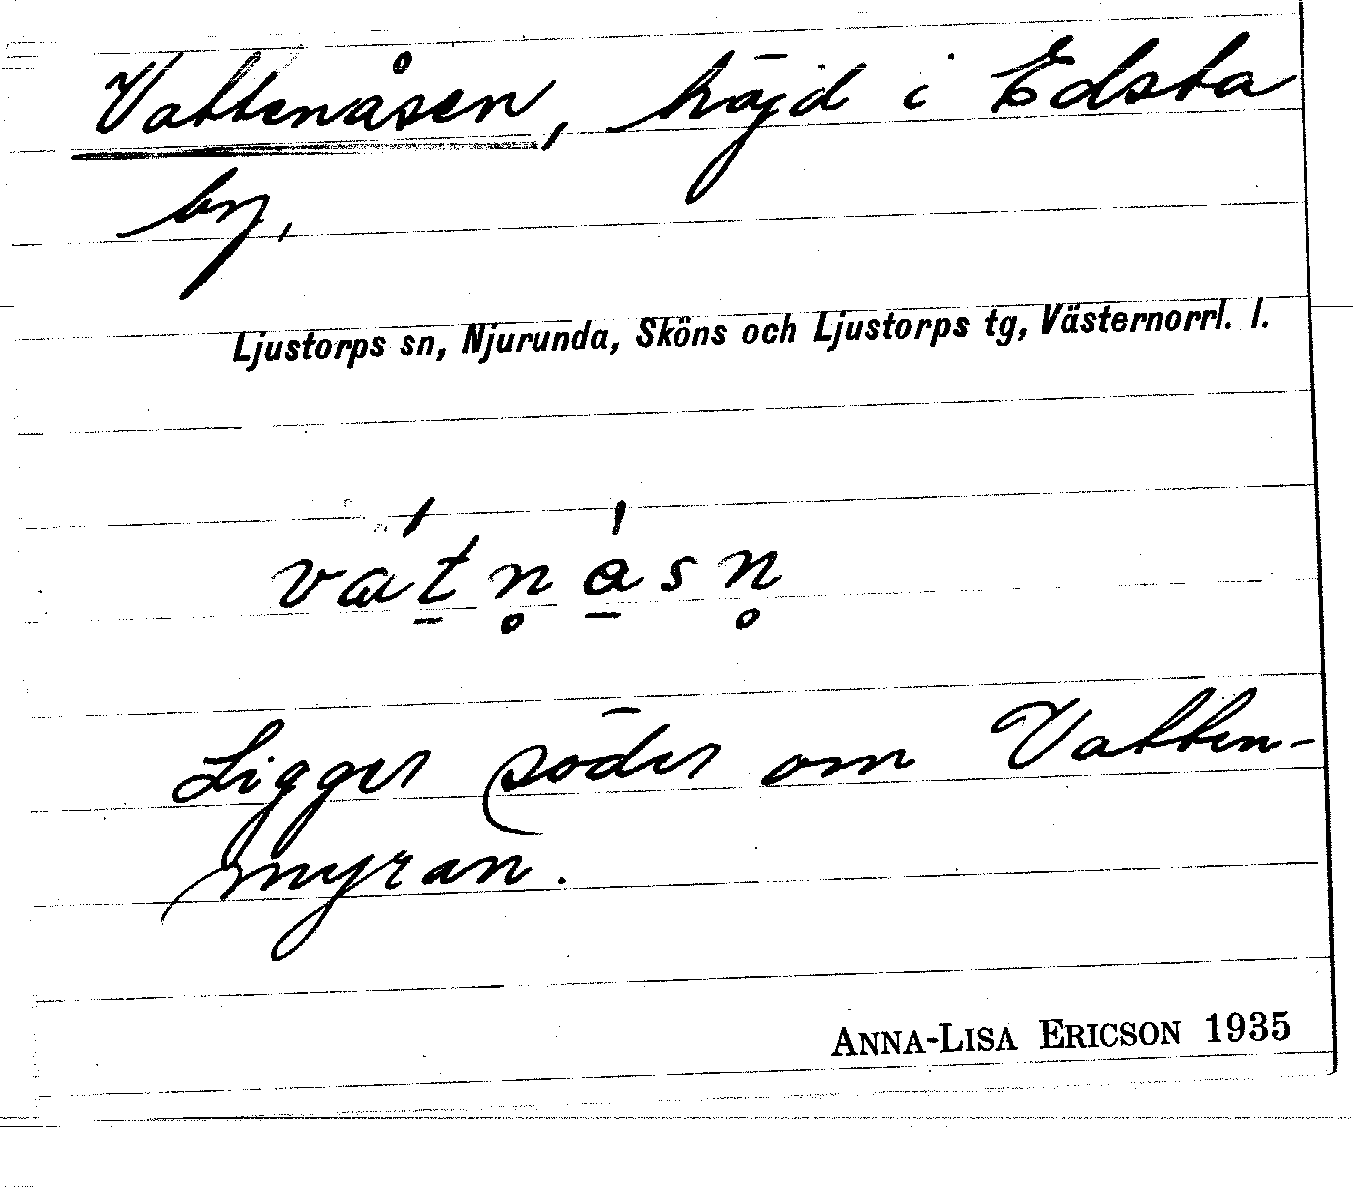 Vattenåsen, höjd i Edsta
by,
Ljustorps sn, Njurunda, Sköns och Ljustorps tg, Västernorrl. l.
vát̠n̥á̠sn̥
Ligger söder om Vatten-
myran.
ANNA-LISA ERICSON 1935